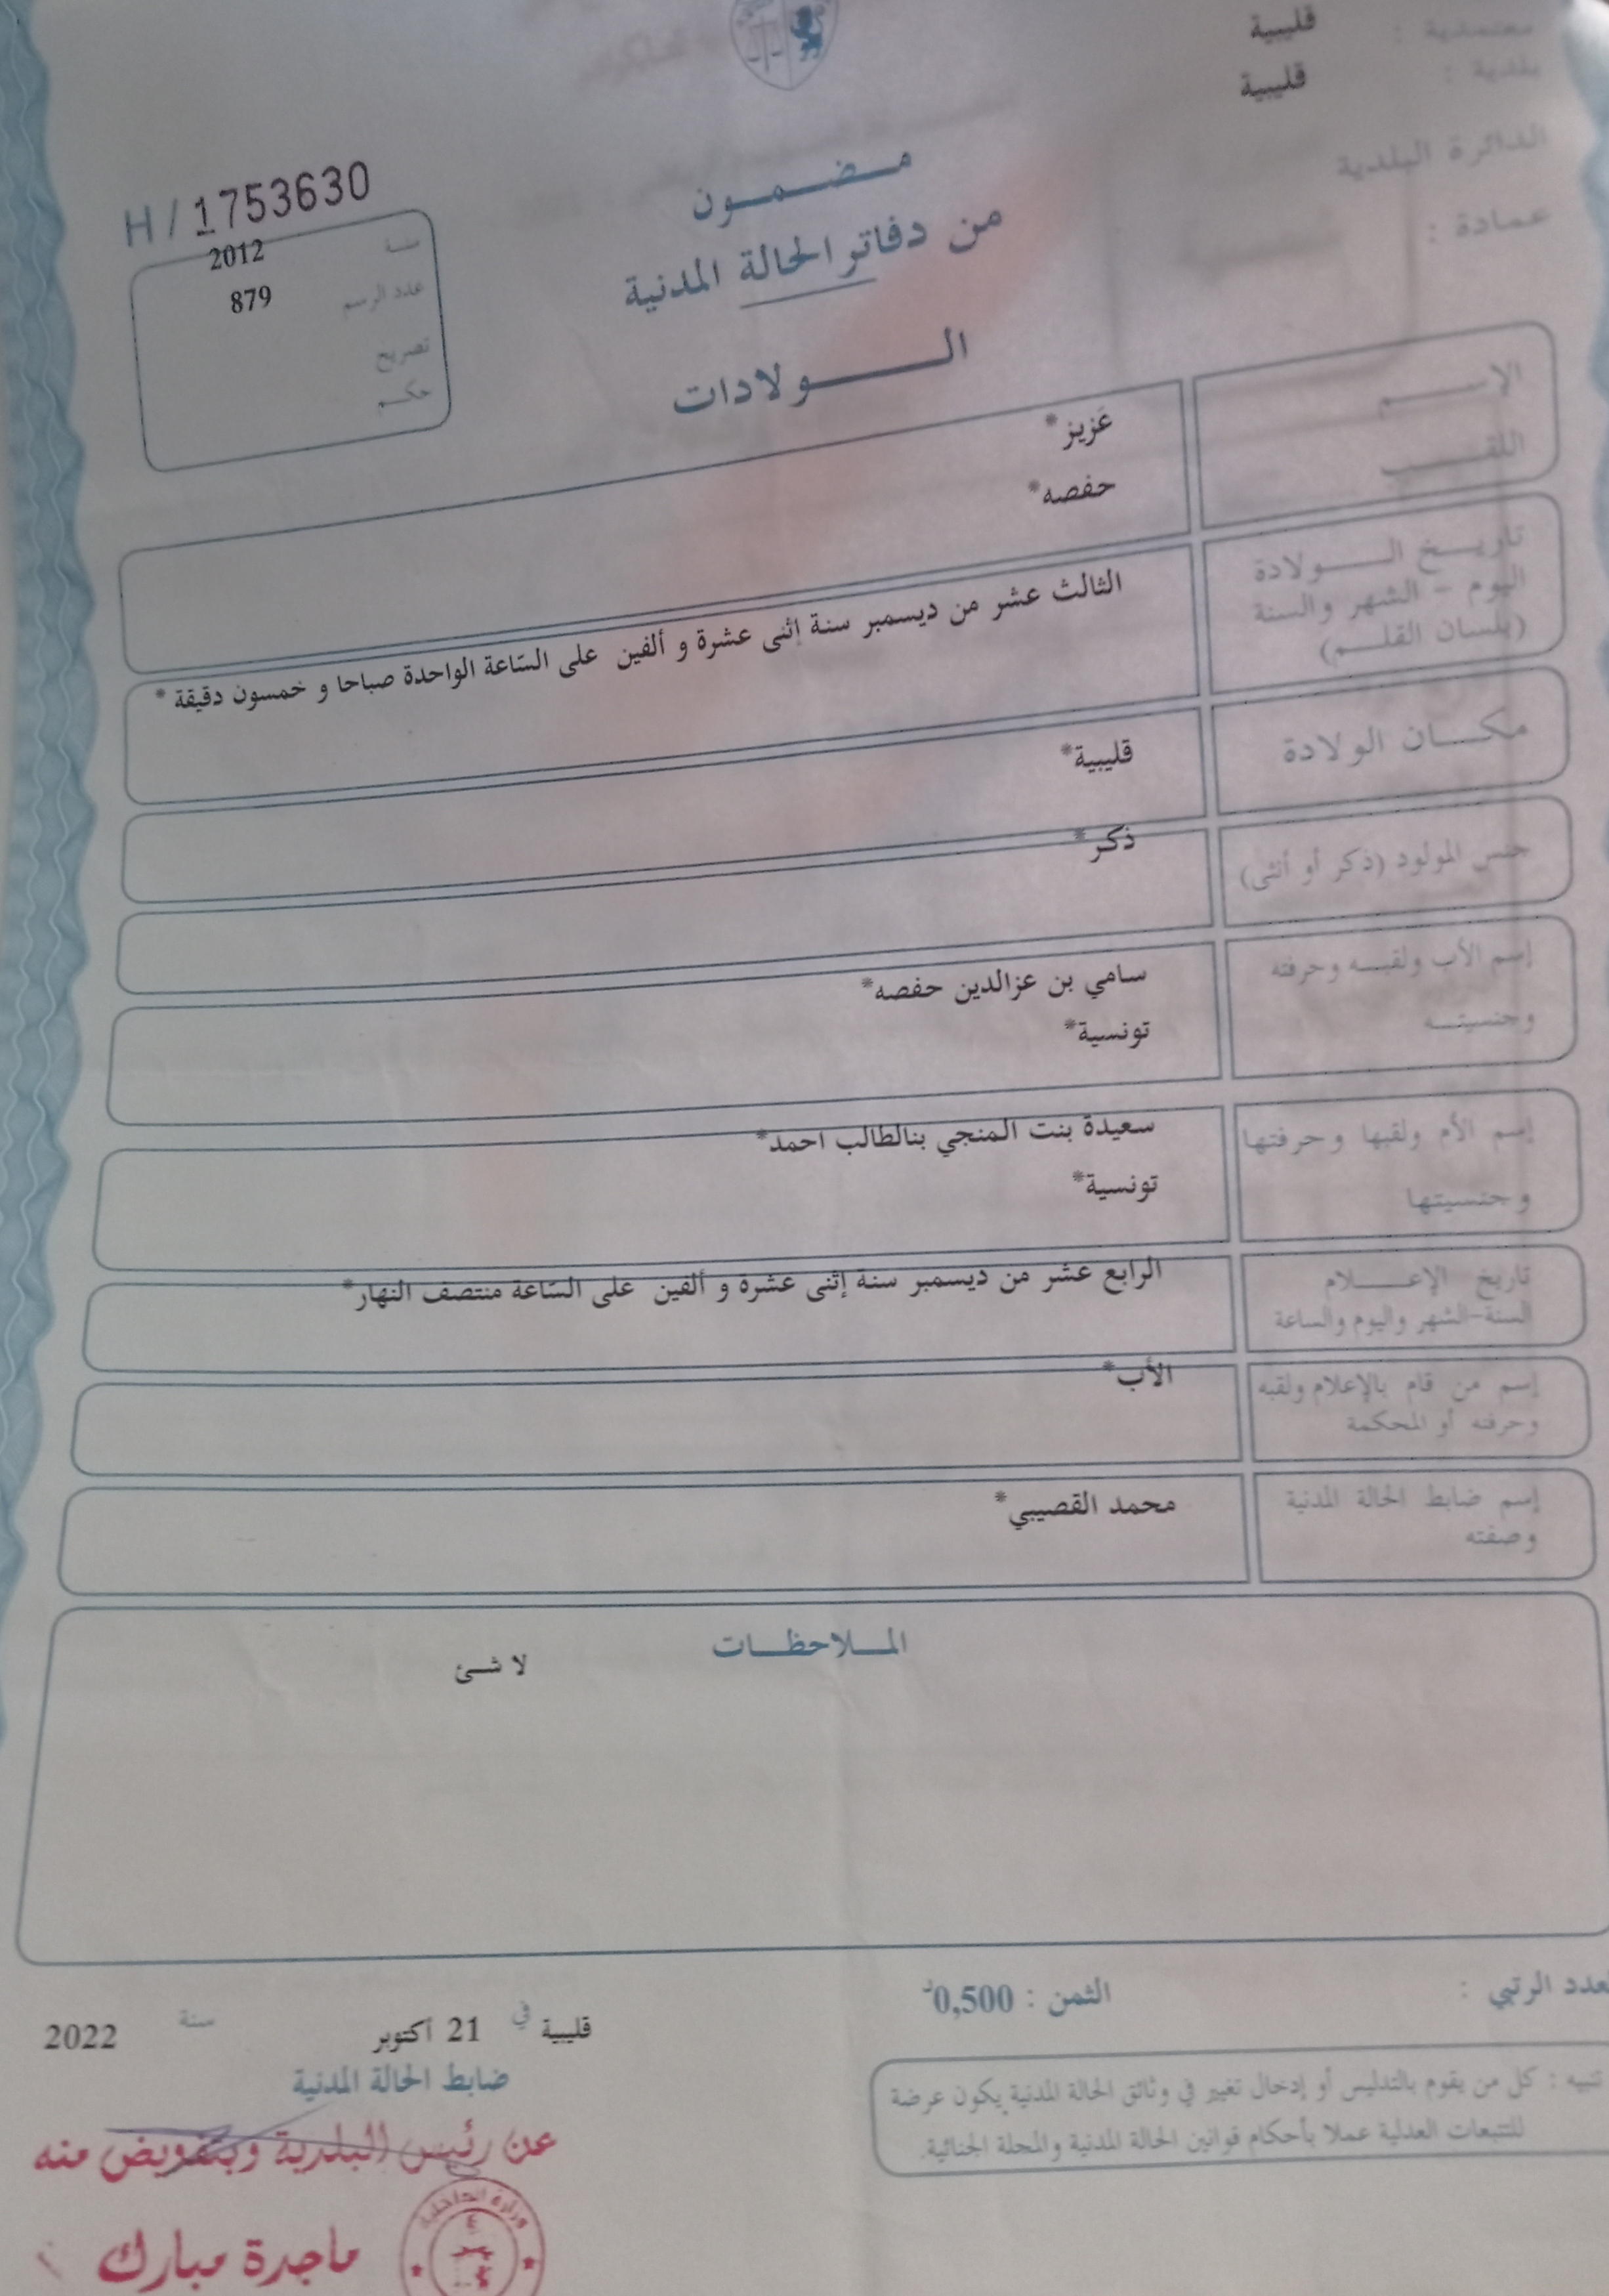 معتمدية : قليبية
بلدية : قليبية
الدائرة البلدية
عمادة :
مضمون
من دفاتر الحالة المدنية
الولادات
H / 1753630
سنة 2012
عدد الرسم 879
تصريح
حكم
الإسم عَزيز*
اللقب حفصه*
تاريخ الولادة
اليوم - الشهر والسنة
(بلسان القلم)
الثالث عشر من ديسمبر سنة إثنى عشرة و ألفين على السّاعة الواحدة صباحا و خمسون دقيقة *
مكان الولادة قليبية*
جنس المولود (ذكر أو أنثى) ذكر*
إسم الأب ولقبه وحرفته سامي بن عزالدين حفصه*
وجنسيته تونسية*
إسم الأم ولقبها وحرفتها سعيدة بنت المنجي بنالطالب احمد*
وجنسيتها تونسية*
تاريخ الإعلام الرابع عشر من ديسمبر سنة إثنى عشرة و ألفين على السّاعة منتصف النهار*
السنة-الشهر واليوم والساعة
إسم من قام بالإعلام ولقبه الأب*
وحرفته أو المحكمة
إسم ضابط الحالة المدنية محمد القصيبي*
وصفته
الملاحظات
لا شئ
العدد الرتبي :
الثمن : 0,500د
قليبية في 21 أكتوبر سنة 2022
ضابط الحالة المدنية
تنبيه : كل من يقوم بالتدليس أو إدخال تغيير في وثائق الحالة المدنية يكون عرضة
للتتبعات العدلية عملا بأحكام قوانين الحالة المدنية والمجلة الجنائية.
عن رئيس البلدية وبتفويض منه
وزارة الداخلية
ماجدة مبارك